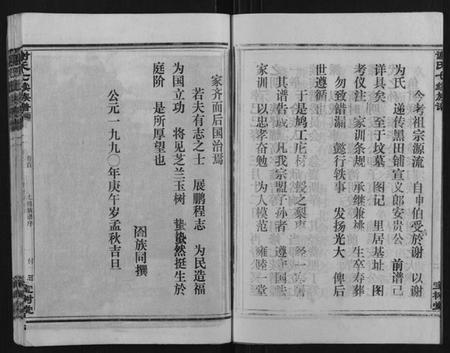 今考祖宗源流 自申伯受於謝 以謝
为氏 递传黑田铺宣义郎安贵公 前谱已
详具矣 至于坟墓 图记 里居基址 图
考仪注 家训条规 承继兼祧 生卒寿葬
勿致错漏 懿行轶事 发扬光大 俾后
世遵循
于是鸠工庀材 之梨枣
其谱告成 凡我宗盟子孙者 遵守国
家训 以忠孝奋勉 为人模范 雍睦一堂
家齐而后国治焉
若夫有志之士 展鹏程志 为民造福
为国立功 将见芝兰玉树 蛰蛰然挺生於
庭阶 是所厚望也
阖族同撰
公元一九九〇年庚午岁孟秋吉旦